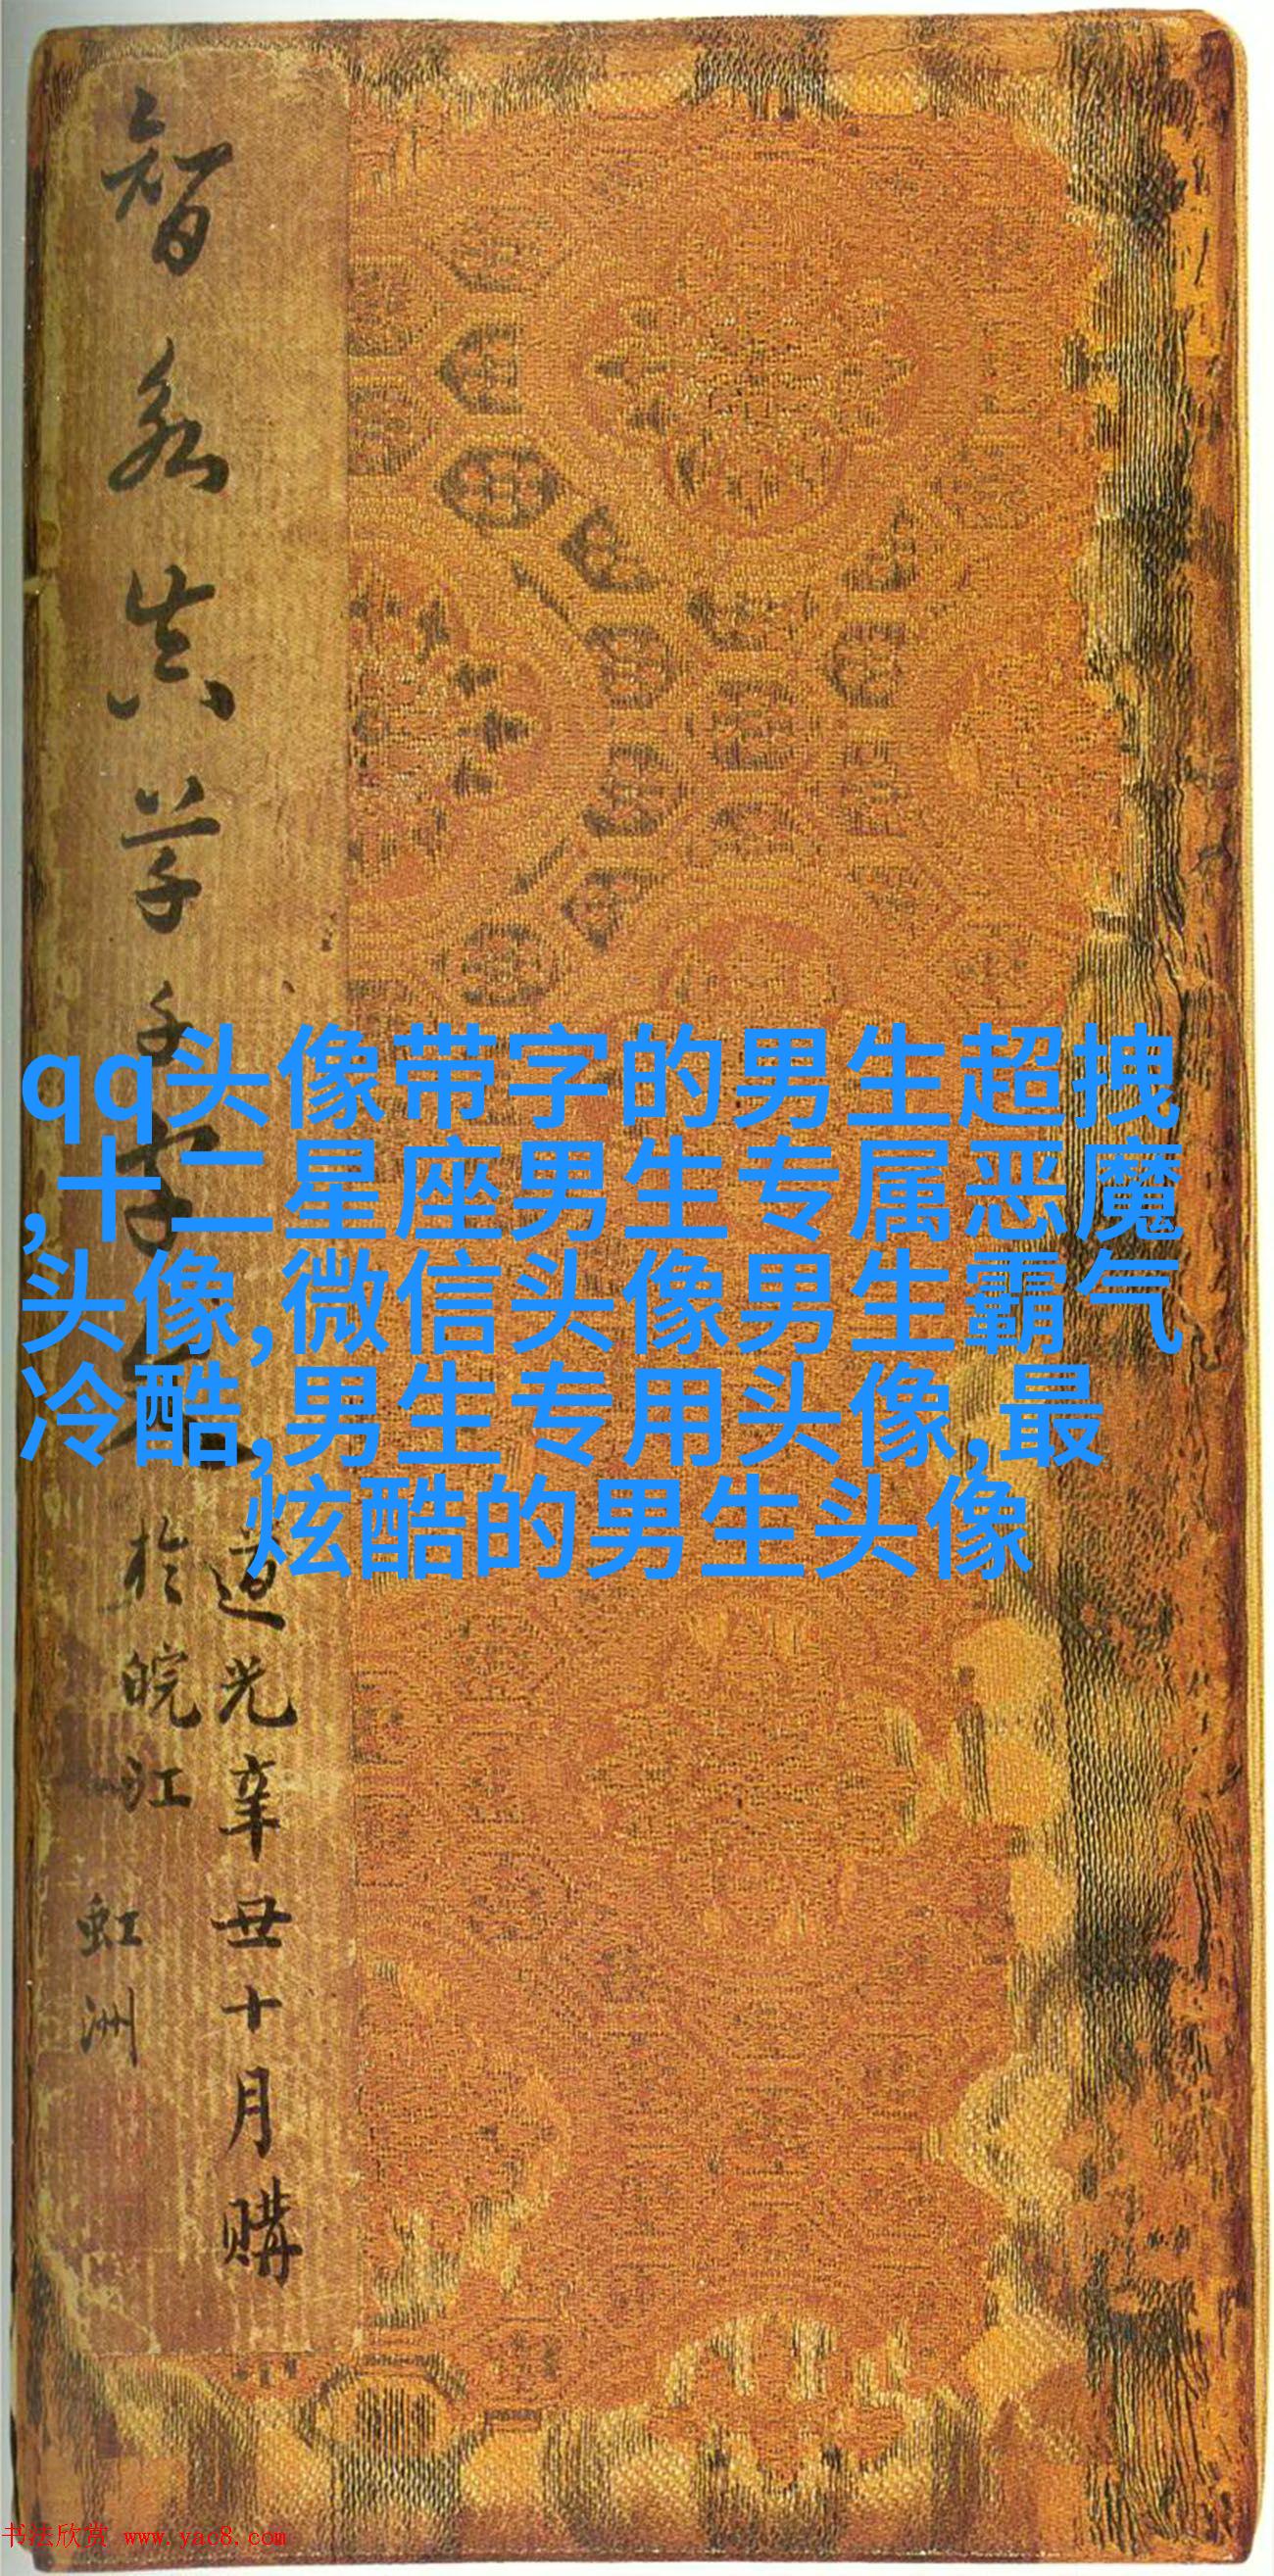 智永真草千字文
道光辛丑十月購
於皖江
虹洲
qq头像带字的男生超拽
,十二星座男生专属恶魔
头像,微信头像男生霸气
冷酷,男生专用头像,最
炫酷的男生头像
书法欣赏 www.yac8.com